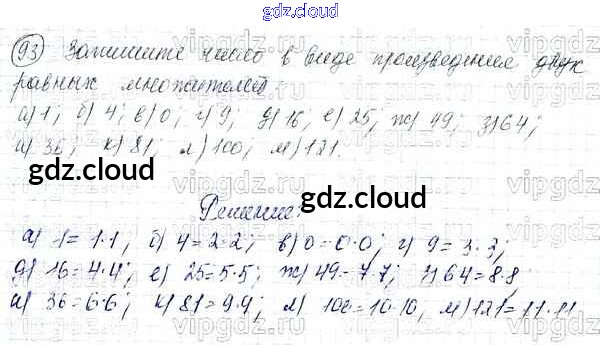 gdz.cloud
93 Запишите число в виде произведения двух
равных множителей:
а) 1; б) 4; в) 0; г) 9; д) 16; е) 25; ж) 49; з) 64;
и) 36; к) 81; л) 100; м) 121.
gdz.cloud gdz.cloud
Решение:
а) 1=1·1; б) 4=2·2; в) 0=0·0; г) 9=3·3;
д) 16=4·4; е) 25=5·5; ж) 49=7·7; з) 64=8·8
и) 36=6·6; к) 81=9·9; л) 100=10·10, м) 121=11·11
vipgdz.ru